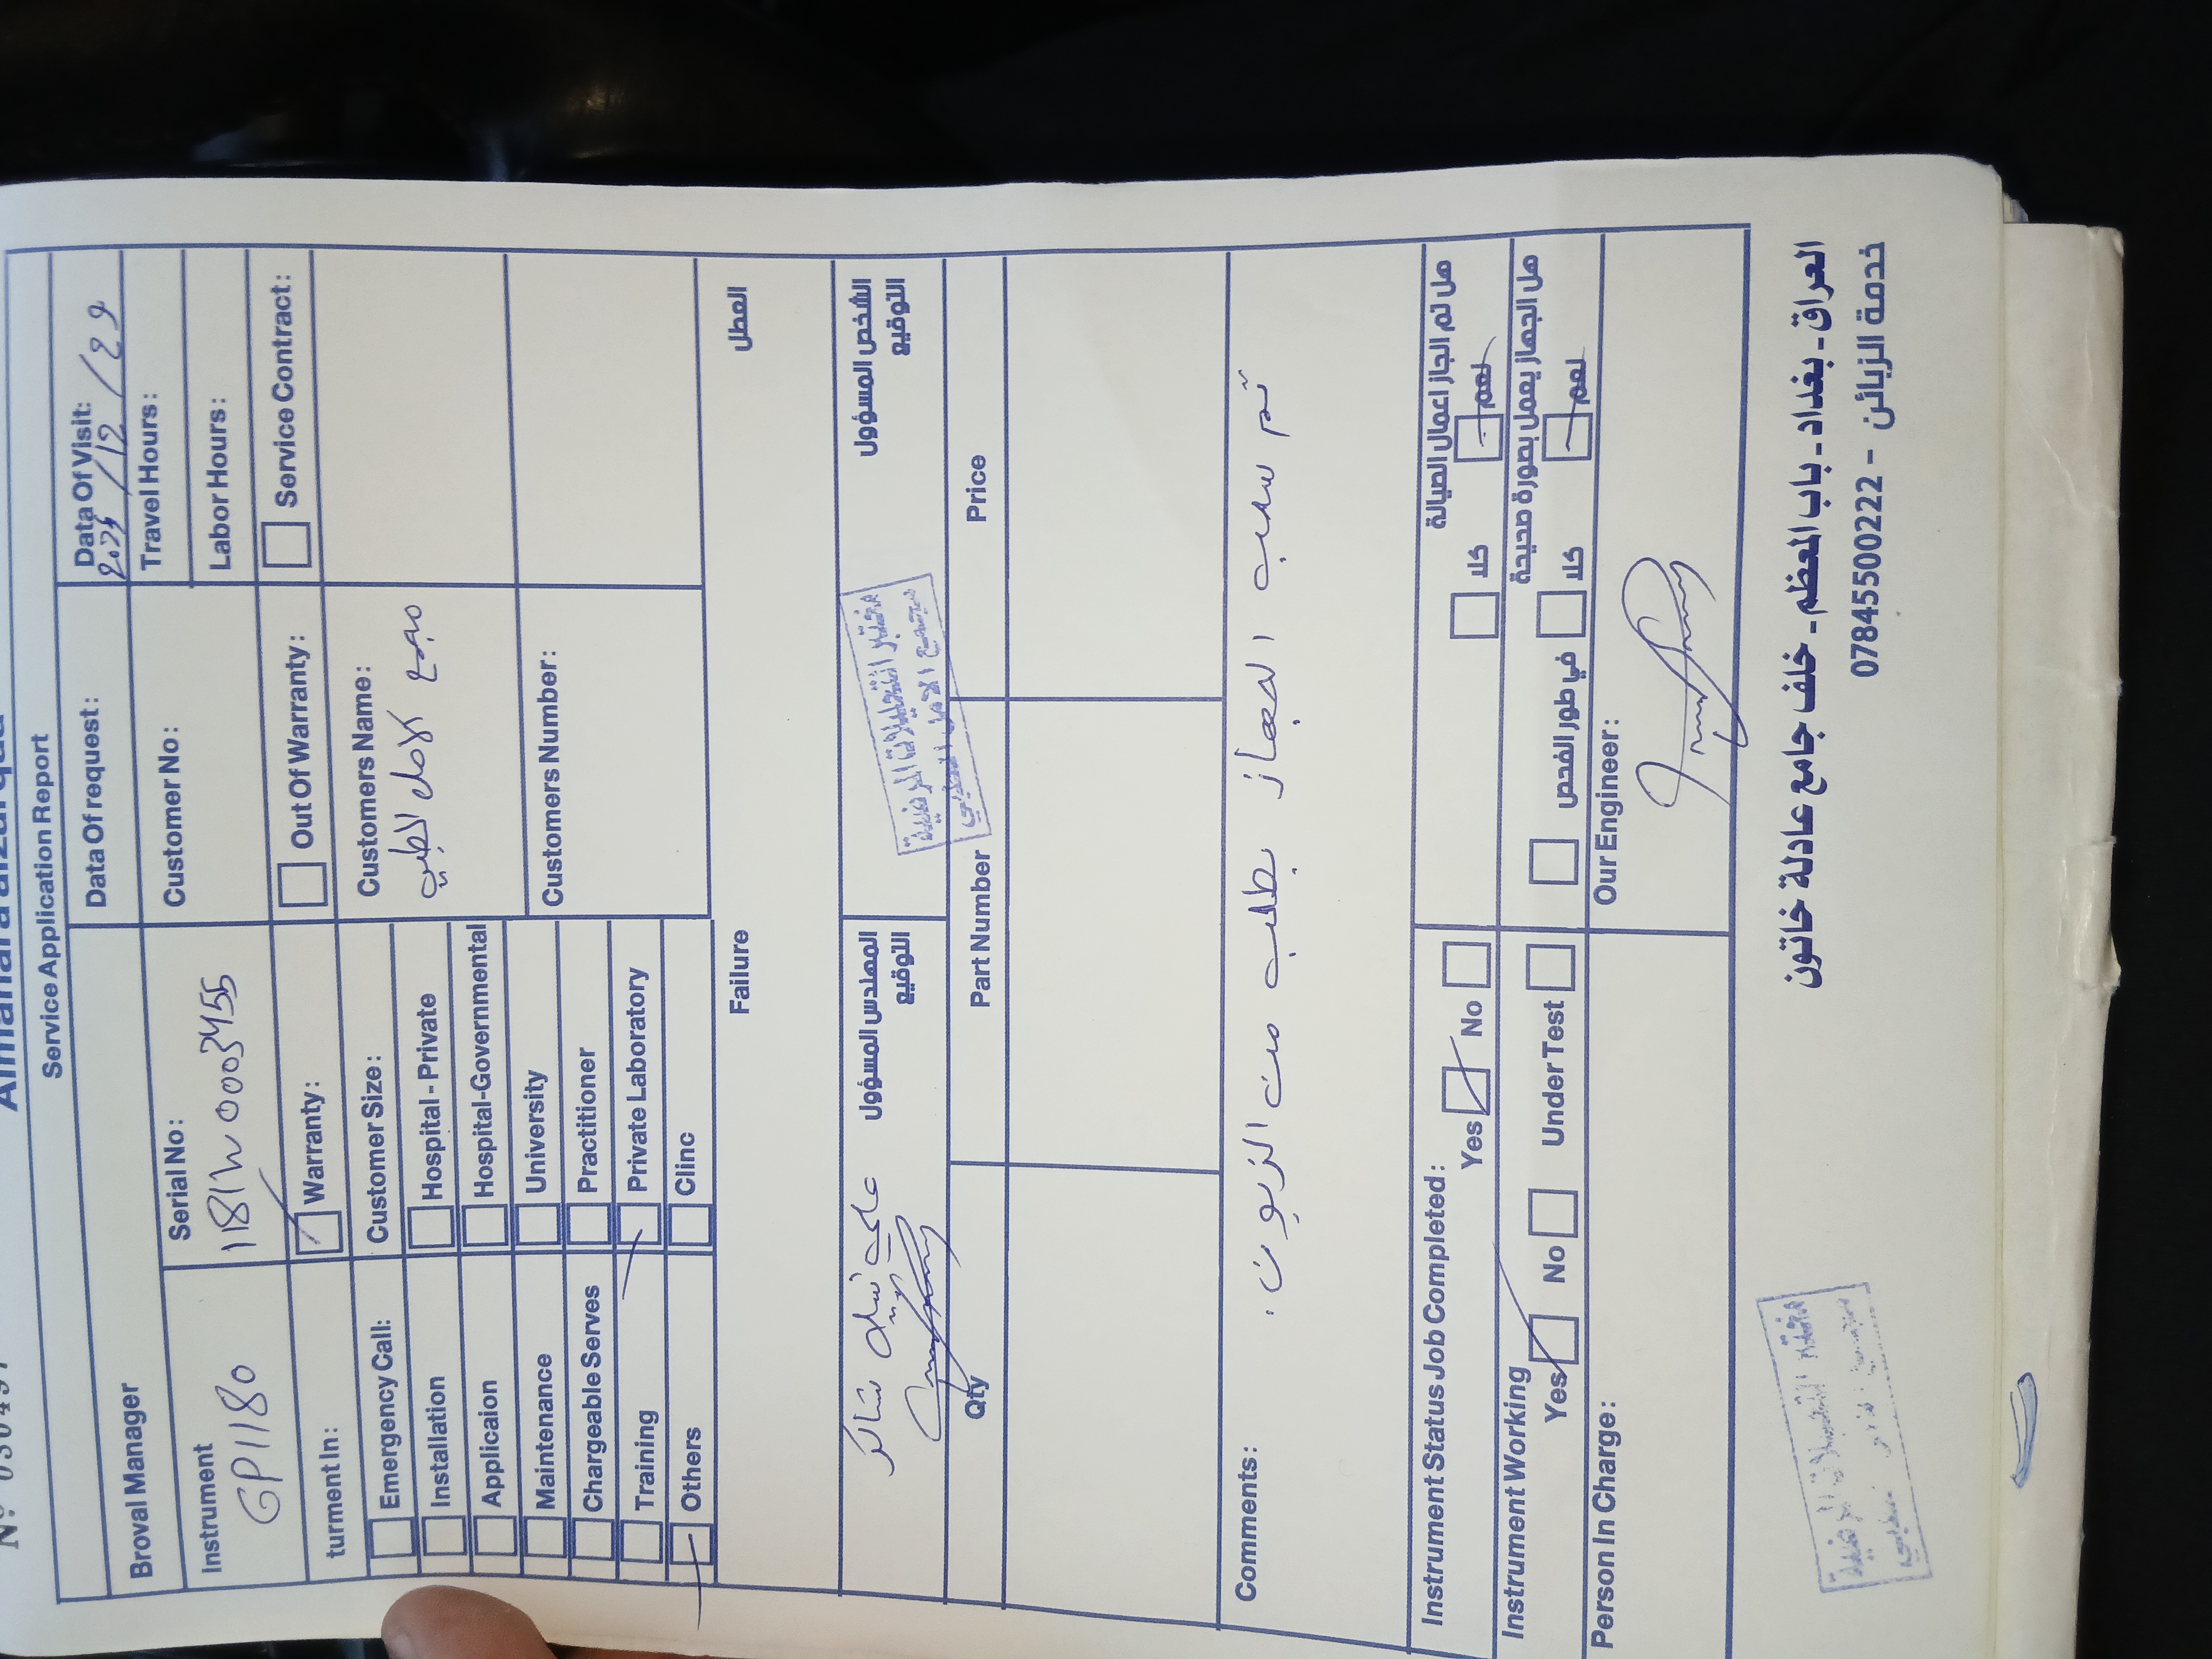 Service Application Report
Data Of request :
Data Of Visit:
2025/12/29
Broval Manager
Travel Hours :
Instrument
GP1180
Serial No :
Customer No :
Labor Hours :
turment In :
Warranty :
Out Of Warranty :
Service Contract :
Emergency Call:
Customer Size :
Customers Name :
مجمع الامل الطبي
Installation
Hospital - Private
Applicaion
Hospital-Governmental
Maintenance
University
Customers Number :
Chargeable Serves
Practitioner
Training
Private Laboratory
Others
Clinc
Failure
العطل
المهندس المسؤول
التوقيع
الشخص المسؤول
التوقيع
مختبر التحليلات المرضية
مجمع الامل الطبي
Qty
Part Number
Price
Comments:
تم سحب الجهاز بطلب من الزبون .
Instrument Status Job Completed :
Yes
No
هل تم انجاز اعمال الصيانة
كلا
نعم
Instrument Working
Yes
No
Under Test
هل الجهاز يعمل بصورة صحيحة
في طور الفحص
كلا
نعم
Person In Charge :
Our Engineer :
العراق - بغداد - باب المعظم - خلف جامع عادلة خاتون
خدمة الزبائن - 07845500222